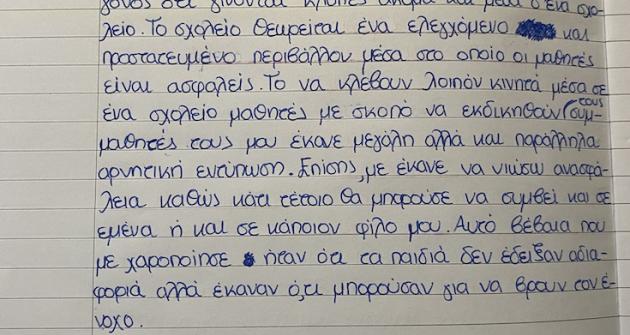 γονός ότι γίνονται κλοπές ακόμα και μέσα σ'ένα σχο-
λείο. Το σχολείο θεωρείται ένα ελεγχόμενο και
προστατευμένο περιβάλλον μέσα στο οποίο οι μαθητές
είναι ασφαλείς. Το να κλέβουν λοιπόν κινητά μέσα σε
ένα σχολείο μαθητές με σκοπό να εκδικηθούν τους συμ-
μαθητές τους μου έκανε μεγάλη αλλά και παράλληλα
αρνητική εντύπωση. Επίσης, με έκανε να νιώσω ανασφά-
λεια καθώς κάτι τέτοιο θα μπορούσε να συμβεί και σε
εμένα ή και σε κάποιον φίλο μου. Αυτό βέβαια που
με χαροποίησε ήταν ότι τα παιδιά δεν έδειξαν αδια-
φορία αλλά έκαναν ό,τι μπορούσαν για να βρουν τον έ-
νοχο.